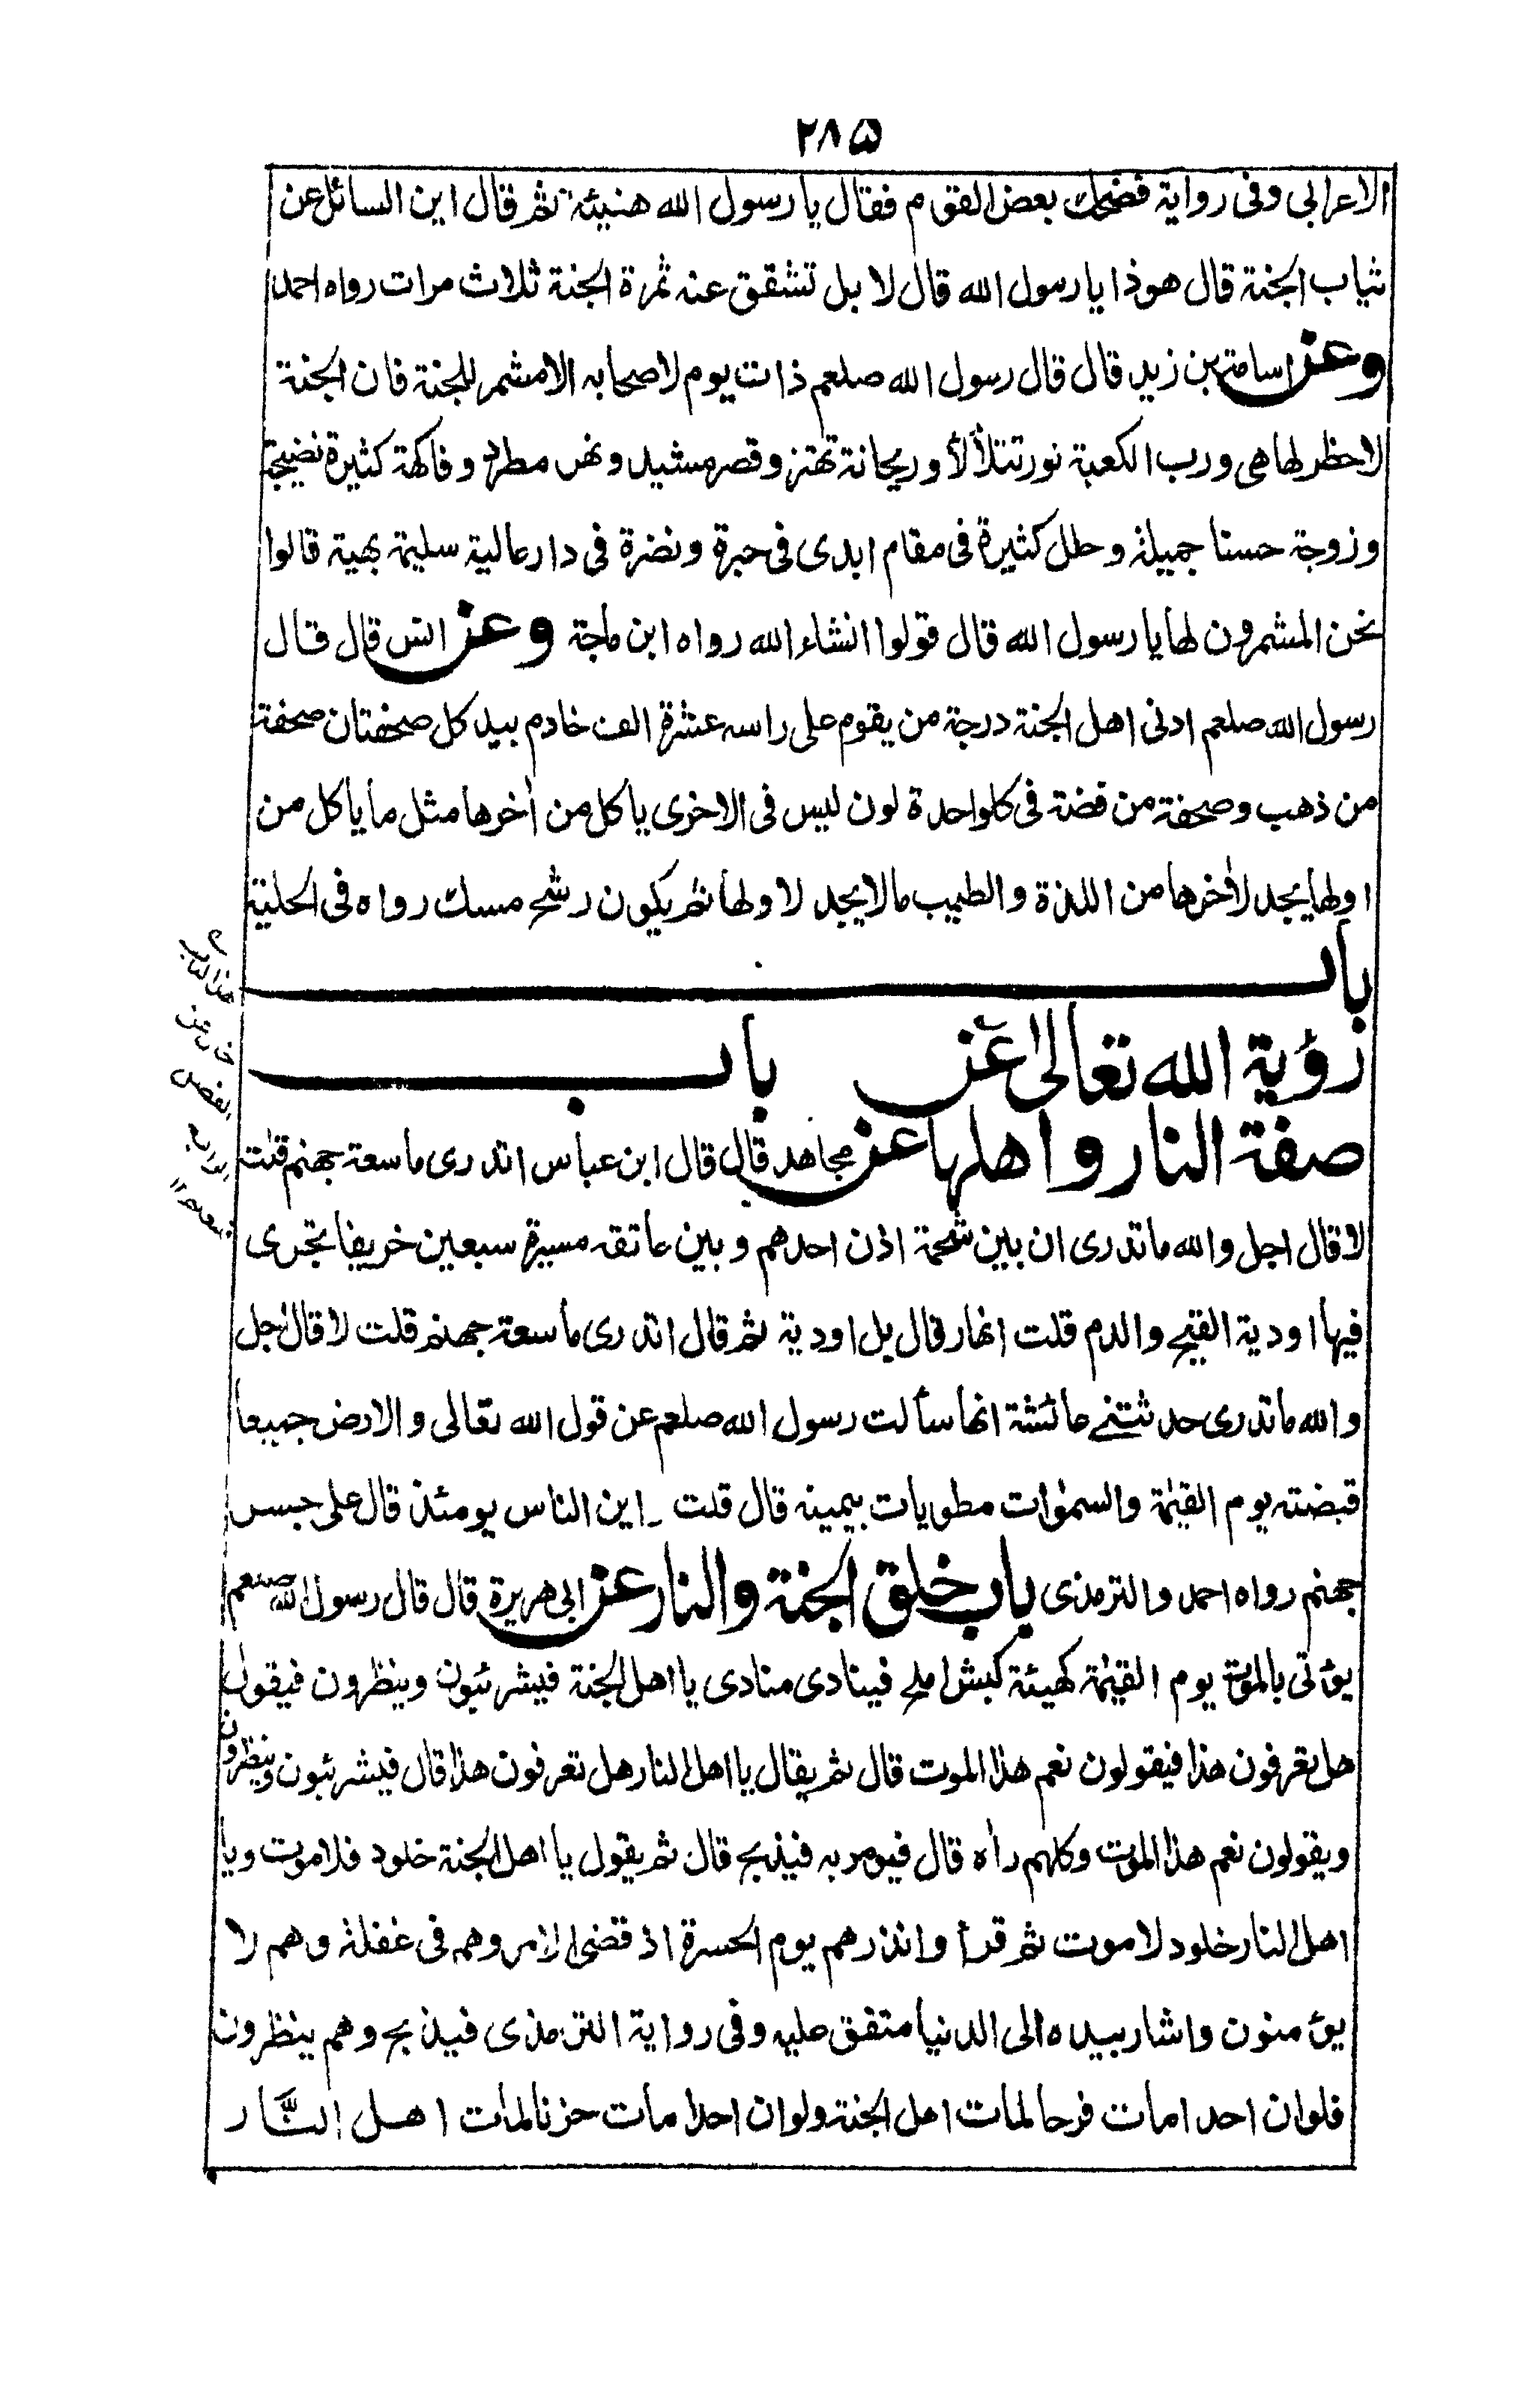 ٢٨٥
الاعرابى وفى رواية فضحك بعض القوم فقال يا رسول الله هنيئة ثم قال اين السائل عن
ثياب الجنة قال هوذا يا رسول الله قال لا بل تشقق عنه ثمرة الجنة ثلاث مرات رواه احمد
وعن اسامة بن زيد قال قال رسول الله صلعم ذات يوم لاصحابه الا مشمر للجنة فان الجنة
لاحظر لها هى ورب الكعبة نور تتلألأ وريحانة تهتز وقصر مشيد ونهر مطرد وفاكهة كثيرة نضيجة
وزوجة حسنا جميلة وحلل كثيرة فى مقام ابدى فى حبرة ونضرة فى دار عالية سليمة بهية قالوا
نحن المشمرون لها يا رسول الله قال قولوا انشاء الله رواه ابن ماجة وعن انس قال قال
رسول الله صلعم ادنى اهل الجنة درجة من يقوم على راسه عشرة الف خادم بيد كل صحفتان صحفة
من ذهب وصحفة من فضة فى كلواحدة لون ليس فى الاخرى ياكل من اٰخرها مثل ما ياكل من
اولها يجد لاٰخرها من اللذة والطيب ما لا يجد لاولها ثم يكون رشح مسك رواه فى الحلية
باب
رؤية الله تعالىٰ عن باب
صفة النار واهلها عن مجاهد قال قال ابن عباس اتدرى ما سعة جهنم قلت
لا قال اجل والله ما تدرى ان بين شحمة اذن احدهم وبين عاتقه مسيرة سبعين خريفا تجرى
فيها اودية القيح والدم قلت انهار قال بل اودية ثم قال اتدرى ما سعة جهنم قلت لا قال اجل
والله ما تدرى حدثتنے عائشة انها سألت رسول الله صلعم عن قول الله تعالى والارض جميعا
قبضته يوم القيٰمة والسمٰوات مطويات بيمينه قال قلت اين الناس يومئذ قال على جسر
جهنم رواه احمد والترمذى باب خلق الجنة والنار عن ابى هريرة قال قال رسول الله صلعم
يؤتى بالموت يوم القيٰمة كهيئة كبش املح فينادى منادى يا اهل الجنة فيشرئبون وينظرون فيقول
هل تعرفون هذا فيقولون نعم هذا الموت قال ثم يقال يا اهل النار هل تعرفون هذا قال فيشرئبون وينظرون
ويقولون نعم هذا الموت وكلهم راٰه قال فيومر به فيذبح قال ثم يقول يا اهل الجنة خلود فلا موت ويا
اهل النار خلود لا موت ثم قرأ وانذرهم يوم الحسرة اذ قضى الامر وهم فى غفلة وهم لا
يؤمنون واشار بيده الى الدنيا متفق عليه وفى رواية الترمذى فيذبح وهم ينظرون
فلوان احدا مات فرحا لمات اهل الجنة ولوان احدا مات حزنا لمات اهل النَّار
هذا الباب
خال عن
الفصل
الرابع